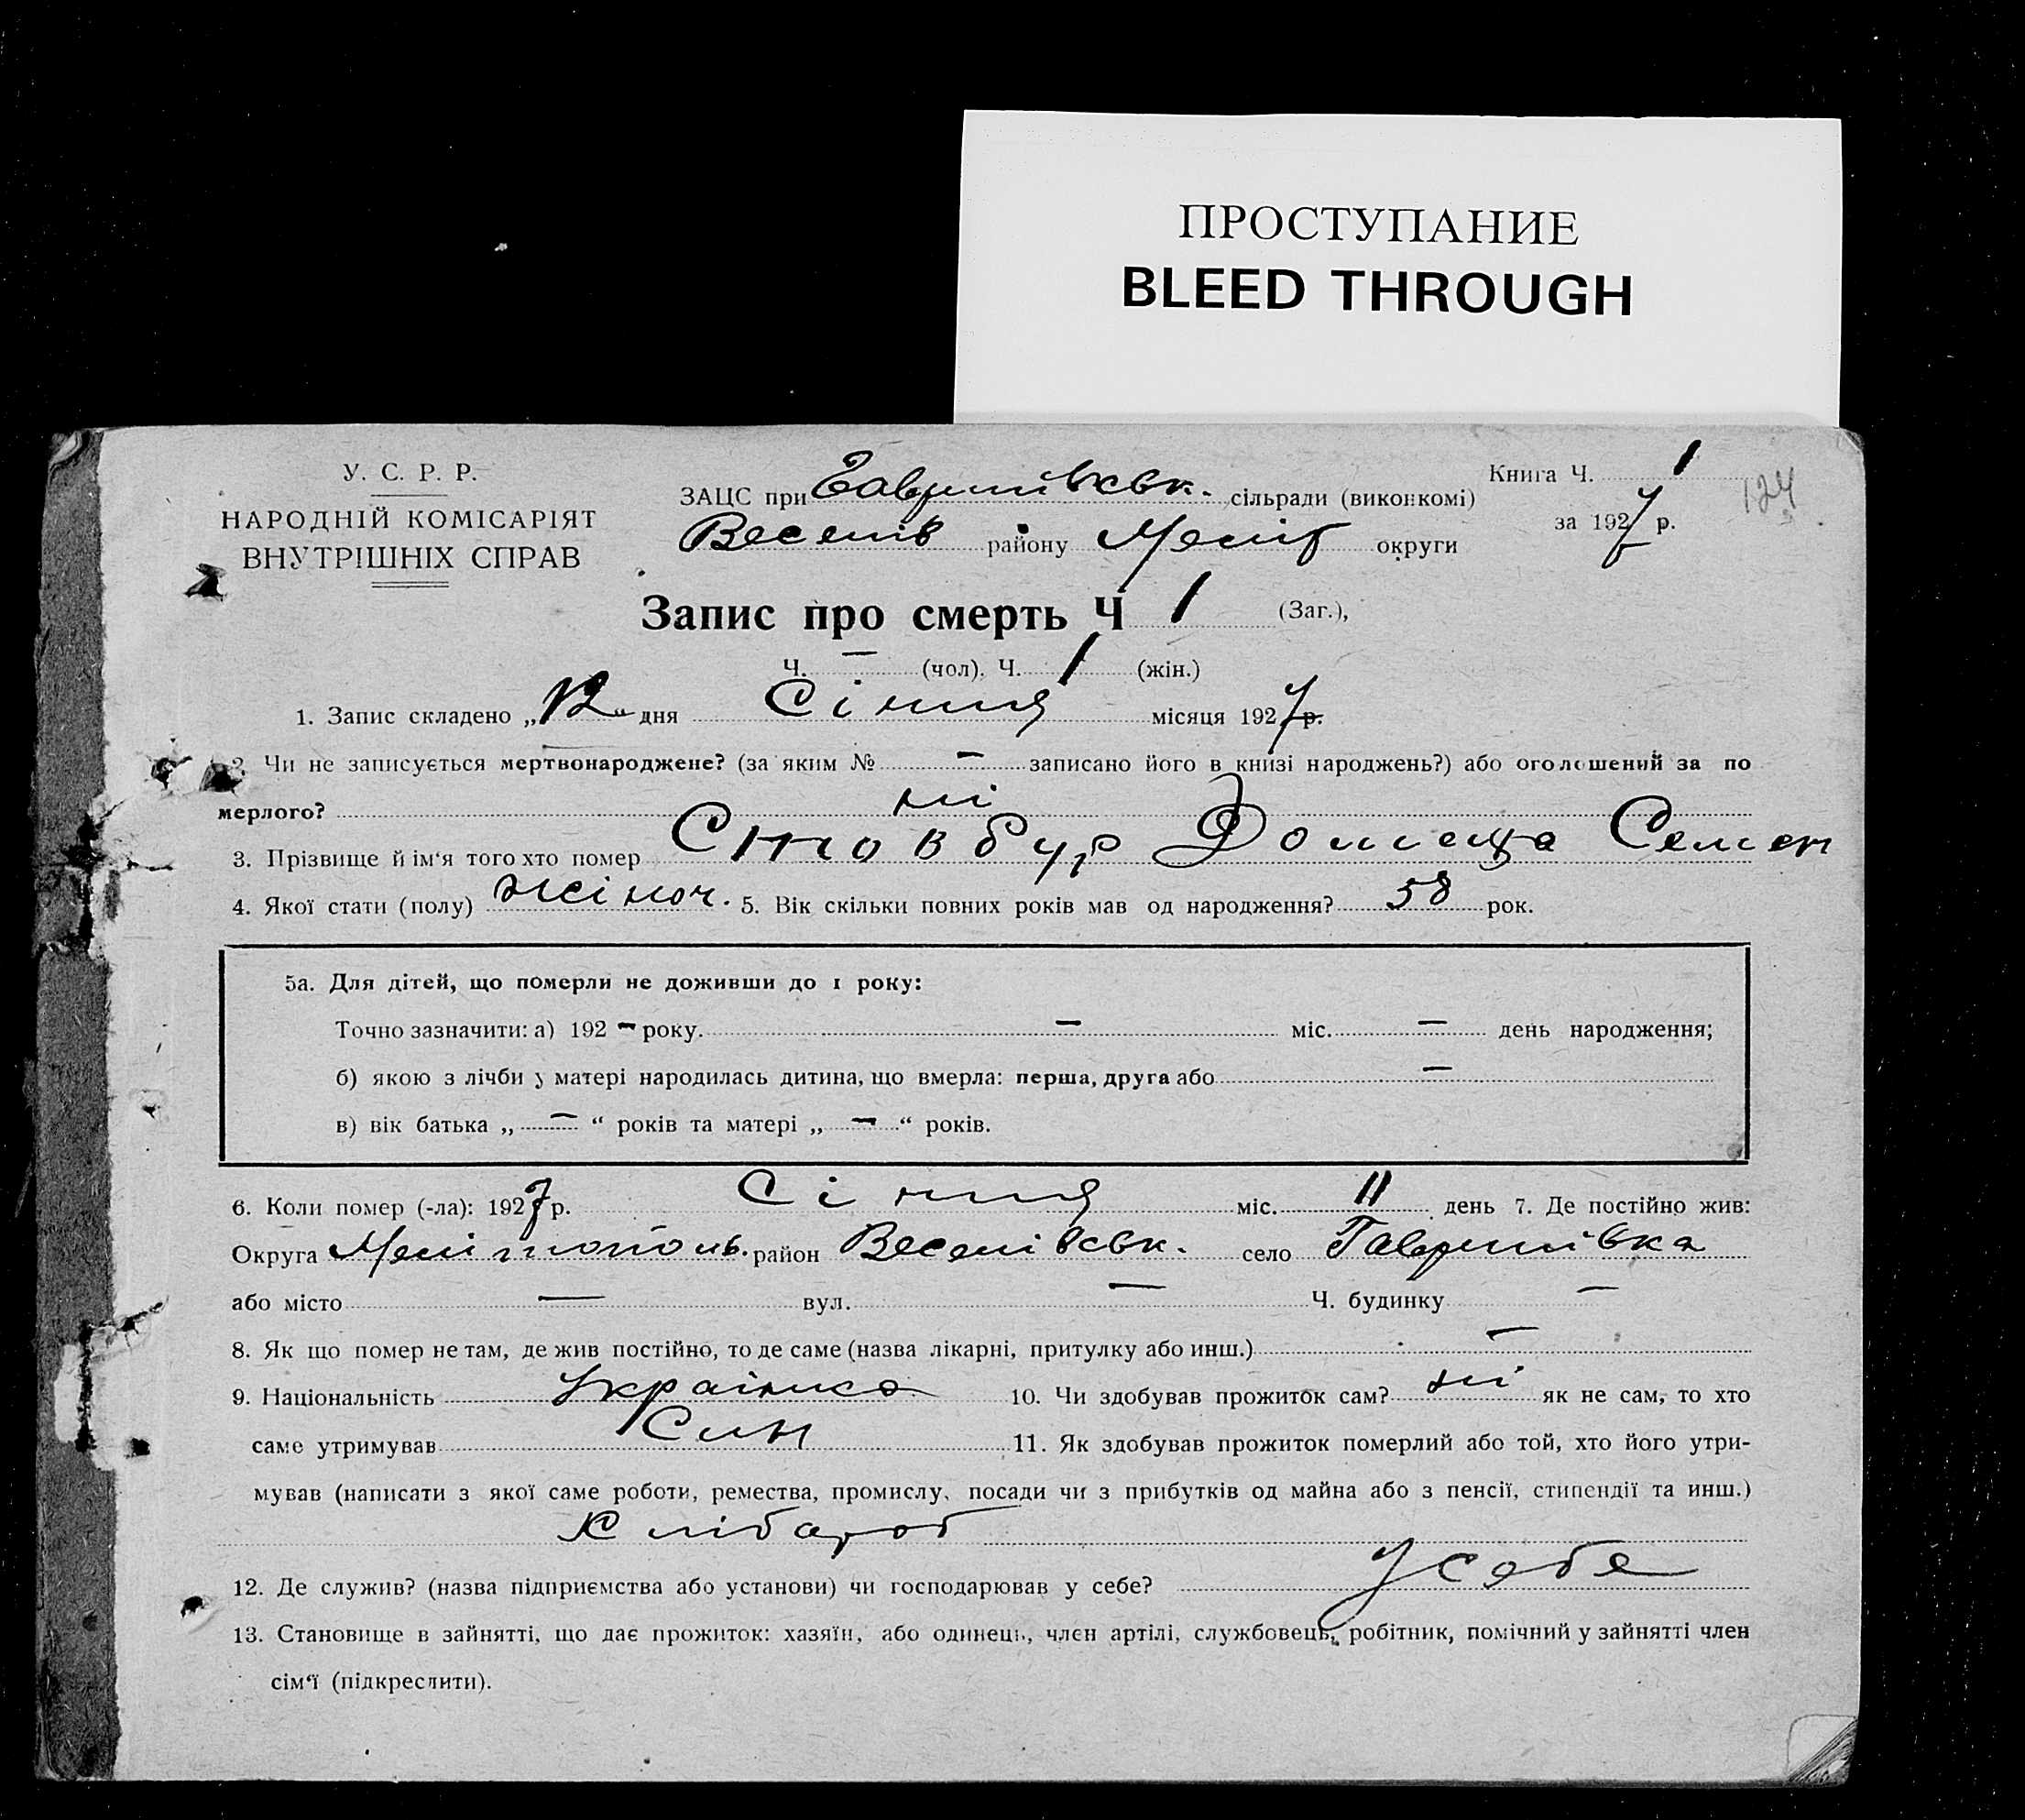 ПРОСТУПАНИЕ
BLEED THROUGH
У. С. Р. Р.
НАРОДНІЙ КОМІСАРІЯТ
ВНУТРІШНІХ СПРАВ
ЗАЦС при Гаврилівськ. сільради (виконкомі)
Веселів району Меліт округи
Книга Ч. 1
за 1927 р.
124
Запис про смерть Ч 1 (Заг.),
Ч. — (чол). Ч. 1 (жін.)
1. Запис складено „12“ дня Січня місяця 1927 р.
2. Чи не записується мертвонароджене? (за яким № — записано його в книзі народжень?) або оголошений за по
мерлого? ні
3. Прізвище й ім‘я того хто помер Стовбур Домеца Семен
4. Якої стати (полу) жіноч. 5. Вік скільки повних років мав од народження? 58 рок.
5а. Для дітей, що померли не доживши до 1 року:
Точно зазначити: а) 192 — року. — міс. — день народження;
б) якою з лічби у матері народилась дитина, що вмерла: перша, друга або —
в) вік батька „ — “ років та матері „ — “ років.
6. Коли помер (-ла): 1927 р. Січня міс. 11 день 7. Де постійно жив:
Округа Мелітополь. район Веселівськ. село Гаврилівка
або місто — вул. — Ч. будинку —
8. Як що помер не там, де жив постійно, то де саме (назва лікарні, притулку або инш.) —
9. Національність Українка 10. Чи здобував прожиток сам? ні як не сам, то хто
саме утримував Син 11. Як здобував прожиток померлий або той, хто його утри-
мував (написати з якої саме роботи, ремества, промислу, посади чи з прибутків од майна або з пенсії, стипендії та инш.)
Хлібороб
12. Де служив? (назва підприємства або установи) чи господарював у себе? У себе
13. Становище в зайнятті, що дає прожиток: хазяїн, або одинець, член артілі, службовець, робітник, помічний у зайнятті член
сім‘ї (підкреслити).